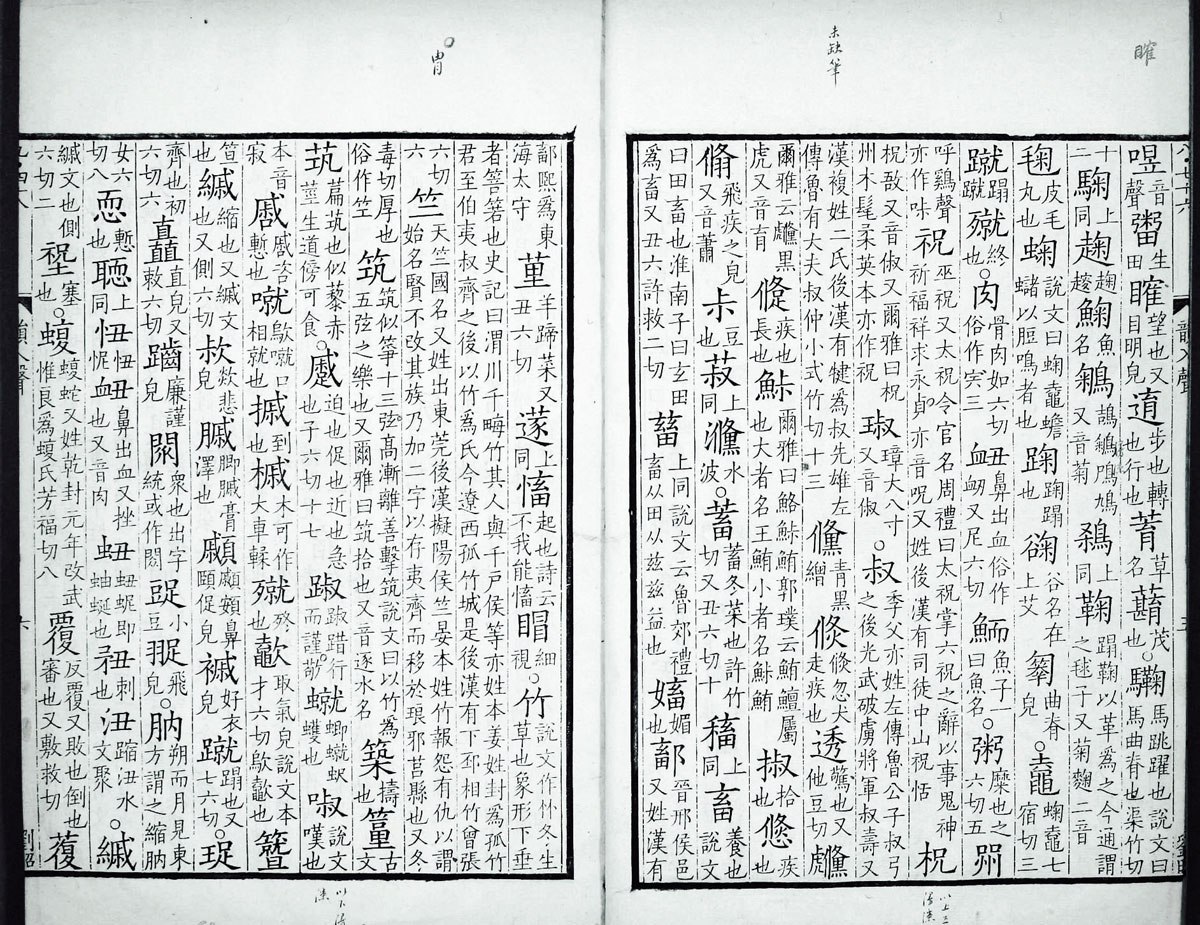 睢
未缺筆
喅音聲䉤生田睢望也又目明皃逳步也轉也行也蓄草名䕎茂也。驧馬跳躍也說文曰馬曲脊也渠竹切
十二駶上同趜上趜䞭鮈魚名鵴鴶鵴鳲鳩又音菊鵴上同鞠蹋鞠以革為之今通謂之毬子又菊麴二音
毱皮毛丸也蜠說文曰蜠鼀蟾蠩以脰鳴者也踘踘蹋也䜯谷名在上艾匊曲脊皃。鼀蜠鼀七宿切三
蹴蹋蹴殧終也。肉骨肉如六切俗作宍三衄鼻出血俗作䘐又尼六切魩魚子一曰魚名。粥糜也之六切五喌
呼鷄聲亦作咮祝巫祝又太祝令官名周禮曰太祝掌六祝之辭以事鬼神祈福祥求永貞亦音呪又姓後漢有司徒中山祝恬柷
柷敔又音俶又爾雅曰柷州木髦柔英本亦作祝琡璋大八寸又音俶。叔季父亦姓左傳魯公子叔弓之後光武破虜將軍叔壽又
漢複姓二氏後漢有犍為叔先雄左傳魯有大夫叔仲小式竹切十三儵青黑繒倏倏忽犬走疾也透驚也又他豆切虪
爾雅云虪黑虎又音育㑜疾也長也鮛爾雅曰鮥鮛鮪郭璞云鮪鱣屬也大者名王鮪小者名鮛鮪掓拾也𢞫疾
翛飛疾之皃又音蕭尗豆也菽上同㶖水波。蓄蓄冬菜也許竹切又丑六切十稸上同畜養也說文
曰田畜也淮南子曰玄田為畜又丑六許救二切蓄上同說文云魯郊禮畜从田从兹兹益也㜅媚也鄐晉邢侯邑又姓漢有
冑
鄐熙為東海太守菫羊蹄菜又丑六切蓫上同慉起也詩云不我能慉䀛細視。竹說文作竹冬生草也象形下垂
者箁箬也史記曰渭川千畮竹其人與千戶侯等亦姓本姜姓封為孤竹君至伯夷叔齊之後以竹為氏今遼西孤竹城是後漢有下邳相竹曾張
六切六竺天竺國名又姓出東莞後漢擬陽侯竺晏本姓竹報怨有仇以謂始名賢不改其族乃加二字以存夷齊而移於琅邪莒縣也又冬
毒切厚也俗作笁筑筑似箏十三弦高漸離善擊筑說文曰以竹為五弦之樂也又爾雅曰筑拾也又音逐水名築擣𥫛古文
茿萹茿也似藜赤莖生道傍可食。蹙迫也促也近也急也子六切十七踧踧踖行而謹敬蝛蝍蝛蚇蠖也𡄱說文嘆也
本音寂慼慼咨慙也噈歍噈口相就也摵到也槭木可作大車輮殧終歜取氣皃說文本才六切歍歜也簪
笪也縬縮也又縬文也又側六切㰗㰗悲皃䐶䐁䐶膏澤也顣顣頞鼻頤促皃䙘好衣皃蹴蹋又七六切。珿
齊也初六切六矗直皃又敕六切䠱廉謹皃閦眾也出字統或作閦豖小豆㧻飛皃。朒朔而月見東方謂之縮朒
女六切八恧慙也聏上同忸忸怩衄鼻出血也又音肉䖡蚰蜒也䏔刺也沑蹜沑水文聚。縬
縬文也側六切二柷塞也。蝮蝮蛇又姓乾封元年改武惟良為蝮氏芳福切八覆反覆又敗也倒也審也又敷救切蕧